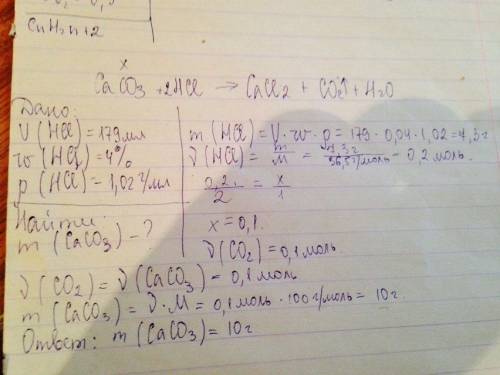 CnH2n+2
x
CaCO3 + 2HCl → CaCl2 + CO2↑ + H2O
Дано:
V(HCl) = 179 мл
w(HCl) = 4%
ρ(HCl) = 1,02 г/мл
Найти:
m(CaCO3) - ?
m(HCl) = V · w · ρ = 179 · 0,04 · 1,02 = 7,3 г
ν(HCl) = m/M = 7,3 г/36,5 г/моль = 0,2 моль.
0,2/2 = x/1
x = 0,1.
ν(CO2) = 0,1 моль.
ν(CO2) = ν(CaCO3) = 0,1 моль
m(CaCO3) = ν · M = 0,1 моль · 100 г/моль = 10 г.
Ответ: m(CaCO3) = 10 г